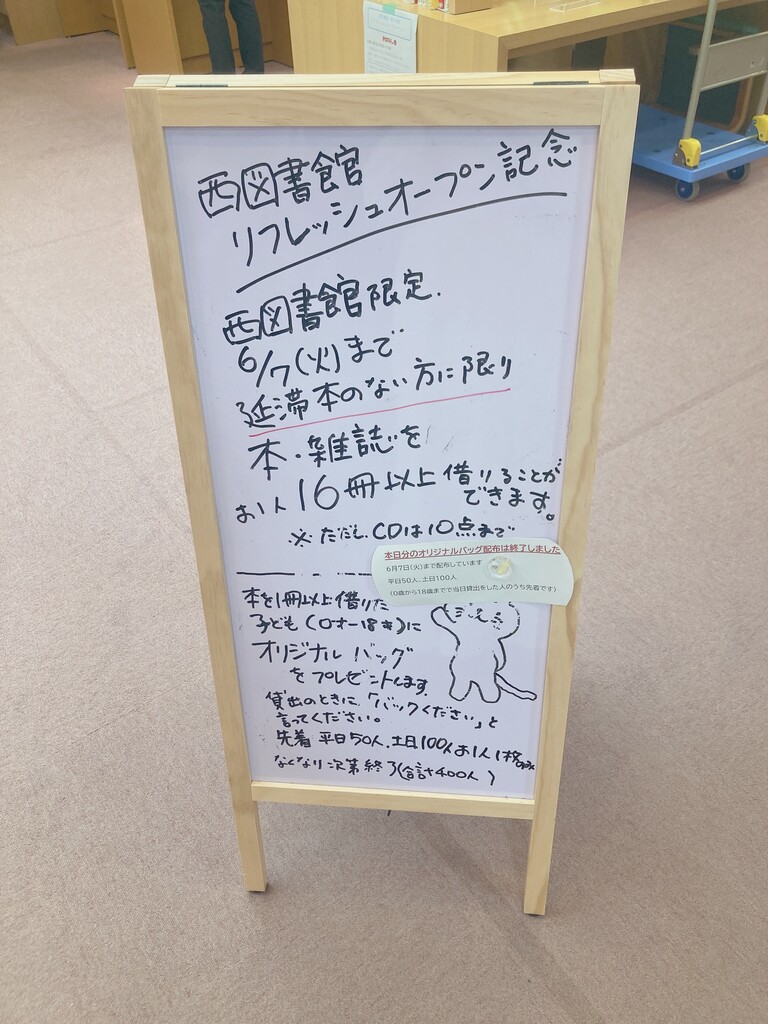 西図書館
リフレッシュオープン記念
西図書館限定.
6/7(火)まで
延滞本のない方に限り
本・雑誌を
お1人16冊以上借りることが
できます。
※ただしCDは10点まで
本日分のオリジナルバッグ配布は終了しました
6月7日(火)まで配布しています
平日50人、土日100人
(0歳から18歳までで当日貸出をした人のうち先着です)
本を1冊以上借りた
子ども(0才-18才)に
オリジナルバッグ
をプレゼントします.
貸出のときに「バックください」と
言ってください。
先着 平日50人、土日100人お1人1枚のみ
なくなり次第終了(合計400人)